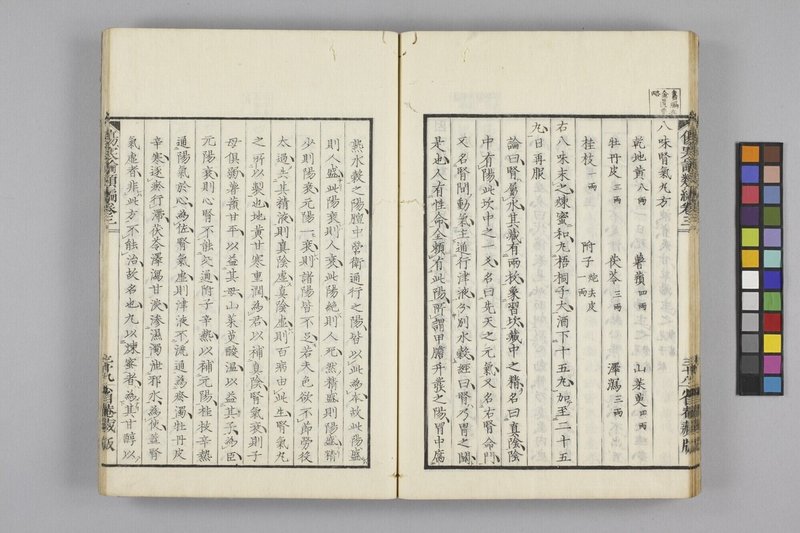 八味腎氣丸方
乾地黃八兩 薯蕷四兩 山茱萸四兩
牡丹皮三兩 茯苓三兩 澤瀉三兩
桂枝一兩 附子炮去皮一兩
右八味末之煉蜜和丸梧桐子大酒下十五丸加至二十五
丸日再服
論曰腎屬水其藏有兩枚象習坎藏中之精名曰眞陰陰
中有陽此坎中之一又名曰先天之元氣又名右腎命門
又名腎間動氣主通行津液分別水穀經曰腎乃胃之關
是也人有性命全賴有此陽所謂甲膽升發之陽胃中腐
熟水穀之陽膻中榮衛通行之陽皆以此為本故此陽盛
則人盛此陽衰則人衰此陽絶則人死然精盛則陽盛精
少則陽衰元陽一衰則諸陽皆不足若夫色欲不節勞役
太過去其精液則眞陰虛眞陰虛則百病由此生腎氣丸
之所以製也地黃甘寒重潤為君以補眞陰腎氣衰則子
母俱弱薯蕷甘平以益其母山茱萸酸溫以益其子為臣
元陽衰則心腎不能交通附子辛熱以補元陽桂枝辛熱
通陽氣於心為佐腎氣虛則津液不流通為痰濁牡丹皮
辛寒逐瘀行滯茯苓澤瀉甘淡滲濕濁泄邪水為使蓋腎
氣虛者非此方不能治故名也丸以煉蜜者為其甘醇以
傷寒論類編卷三